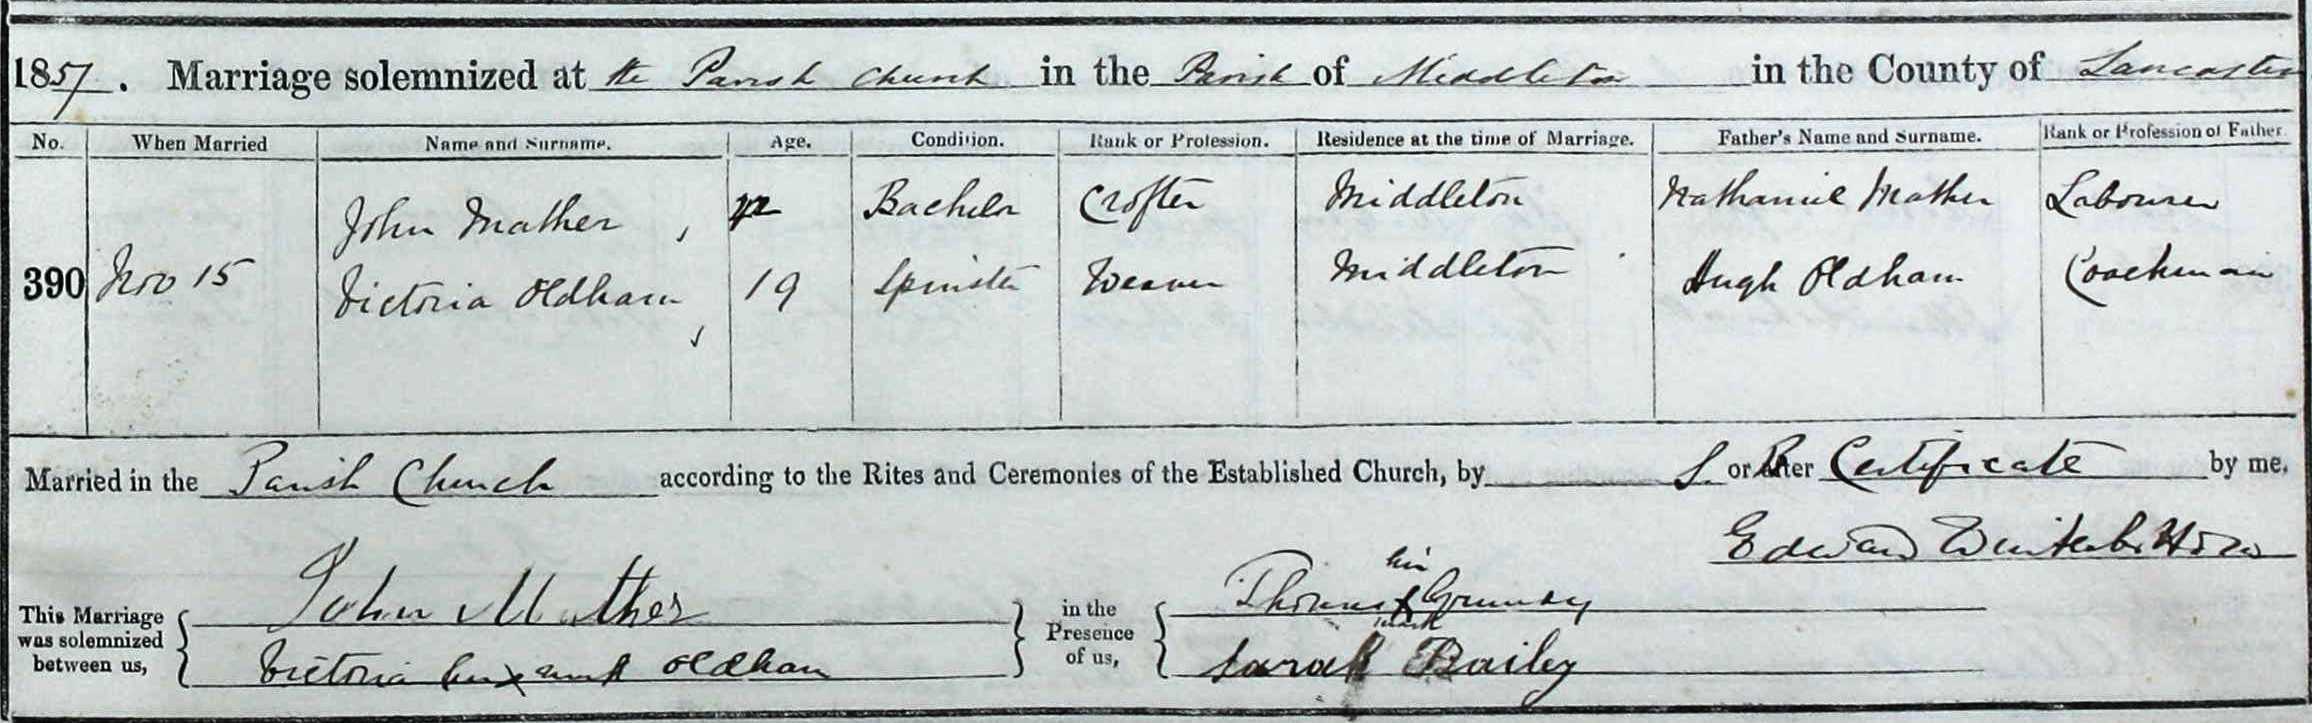 1857. Marriage solemnized at the Parish Church in the Parish of Middleton in the County of Lancaster
No. When Married Name and Surname. Age. Condition. Rank or Profession. Residence at the time of Marriage. Father's Name and Surname. Rank or Profession of Father.
John Mather, Bachelor Crofter Middleton Nathaniel Mather Labourer
390 Nov 15 Victoria Oldham, 19 Spinster Weaver Middleton Hugh Oldham Coachman
Married in the Parish Church according to the Rites and Ceremonies of the Established Church, by or after Certificate by me,
Edward
This Marriage was solemnized between us, John Mather in the Presence of us, Thomas his X mark Grundy
Victoria her X mark Oldham Sarah Bailey